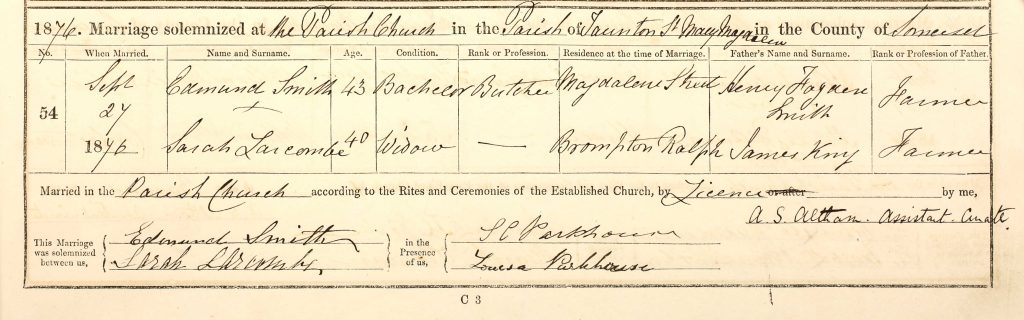 1876. Marriage solemnized at the Parish Church in the Parish of Taunton St Mary Magdalen in the County of Somerset
No. When Married. Name and Surname. Age. Condition. Rank or Profession. Residence at the time of Marriage. Father's Name and Surname. Rank or Profession of Father.
Sept Edmund Smith 43 Bachelor Butcher Magdalene Street Henry Smith Farmer
54 27
1876 Sarah Larcombe 40 Widow — Brompton Ralph James King Farmer
Married in the Parish Church according to the Rites and Ceremonies of the Established Church, by Licence or after by me,
A. S. Altham. Assistant. Curate.
This Marriage was solemnized between us, Edmund Smith in the Presence of us, S C Parkhouse
Sarah Larcombe Louisa Parkhouse
C 3